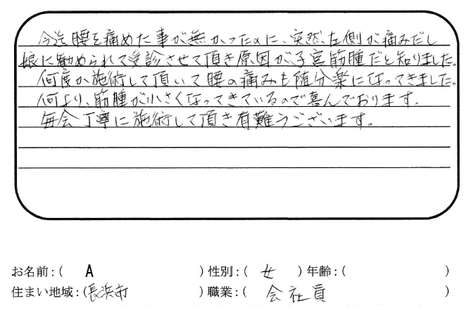 今迄腰を痛めた事が無かったのに、突然左側が痛みだし
娘に勧められて受診させて頂き原因が子宮筋腫だと知りました。
何度か施術して頂いて腰の痛みも随分楽になってきました。
何より、筋腫が小さくなってきているので喜んでおります。
毎会丁寧に施術して頂き有難うございます。
お名前:( A )性別:( 女 )年齢:( )
住まい地域:(長浜市 )職業:( 会社員 )